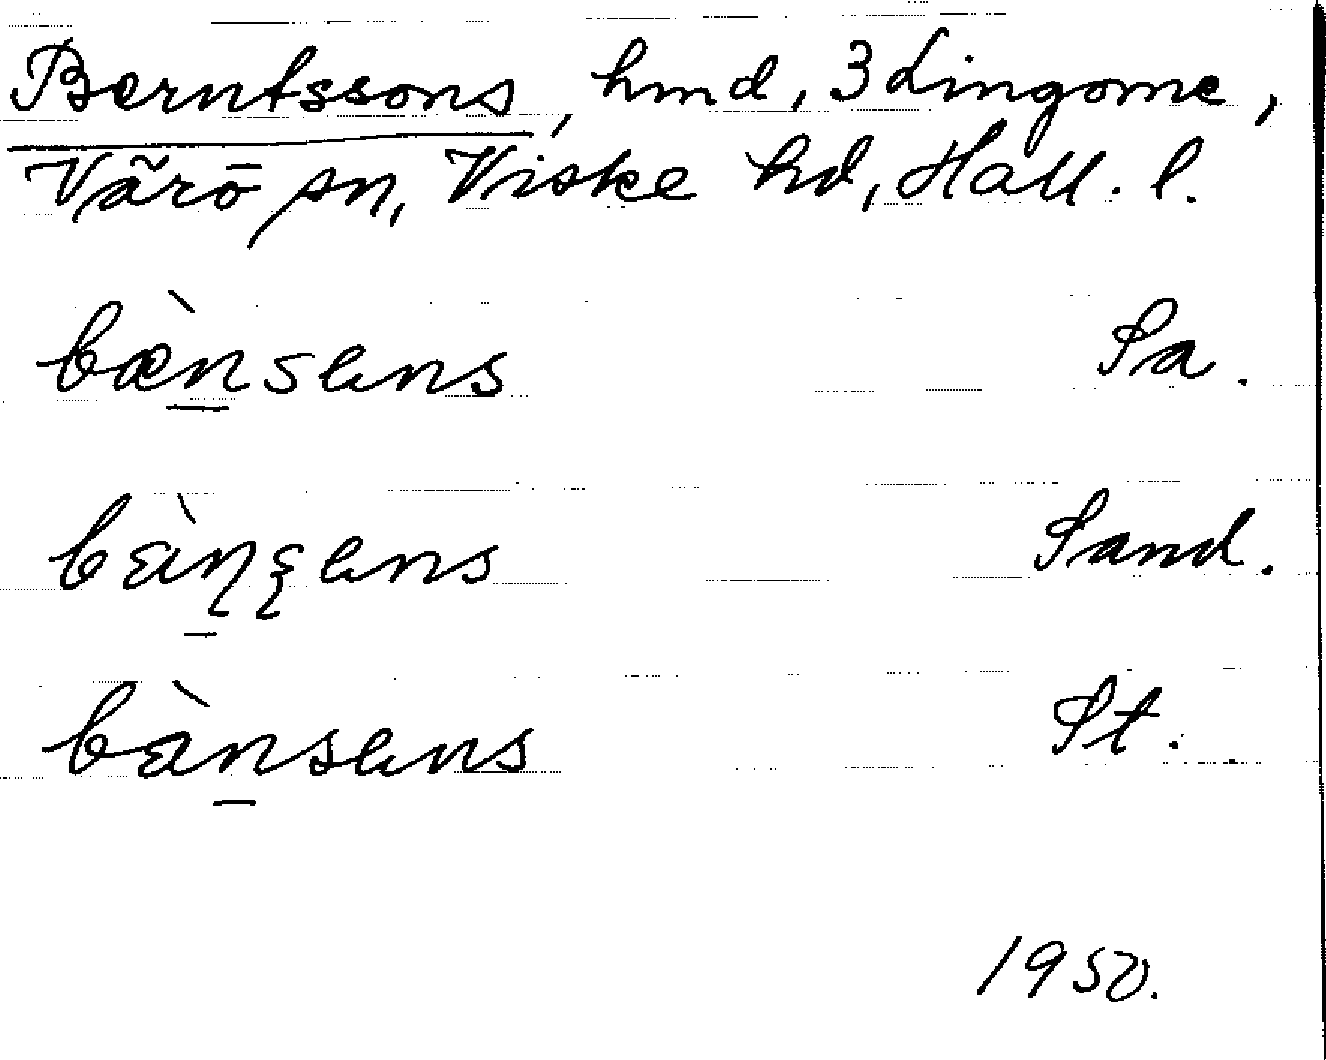 Berntssons, hmd, 3 Lingome,
Värö sn, Viske hd, Hall. l.
bæ̀nsens Sa.
Sand.
bànsens St.
1950.